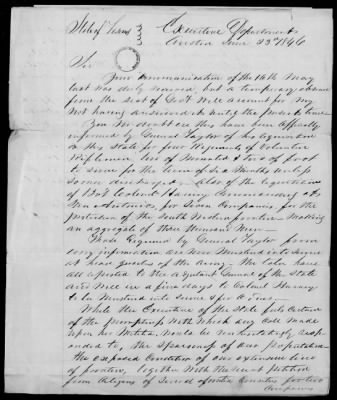 State of Texas Executive Department
Austin June 23d 1846
Sir
Your communication of the 16th May
last was duly received, but a temporary absence
from the Seat of Govt will account for my
not having answered it until the present time
You no doubt are ere this have been officially
informed by General Taylor of his requisition
on this State for four Regiments of Volunteer
Riflemen, two of Mounted & two of foot
to serve for the term of Six Months unless
sooner discharged. Also of the requisition
of Colonel Harney Commanding at San
Antonio, for Seven Companies, for the
protection of the South Western frontier making
an aggregate of three thousand Men
Those required by General Taylor from
my information are now Mustered into Service
at Head quarters of the Army. The latter have
all reported to the adjutant General of the State
and will in a few days to Colonel Harney
to be Mustered into Service
While the Executive of the State feels
of the promptness with which any call made
upon the Militia, would be
responded to, the sparseness of our population
the exposed condition of our extensive line
of frontier, together with the recent petition
from citizens of Several frontier Counties for two
Companies